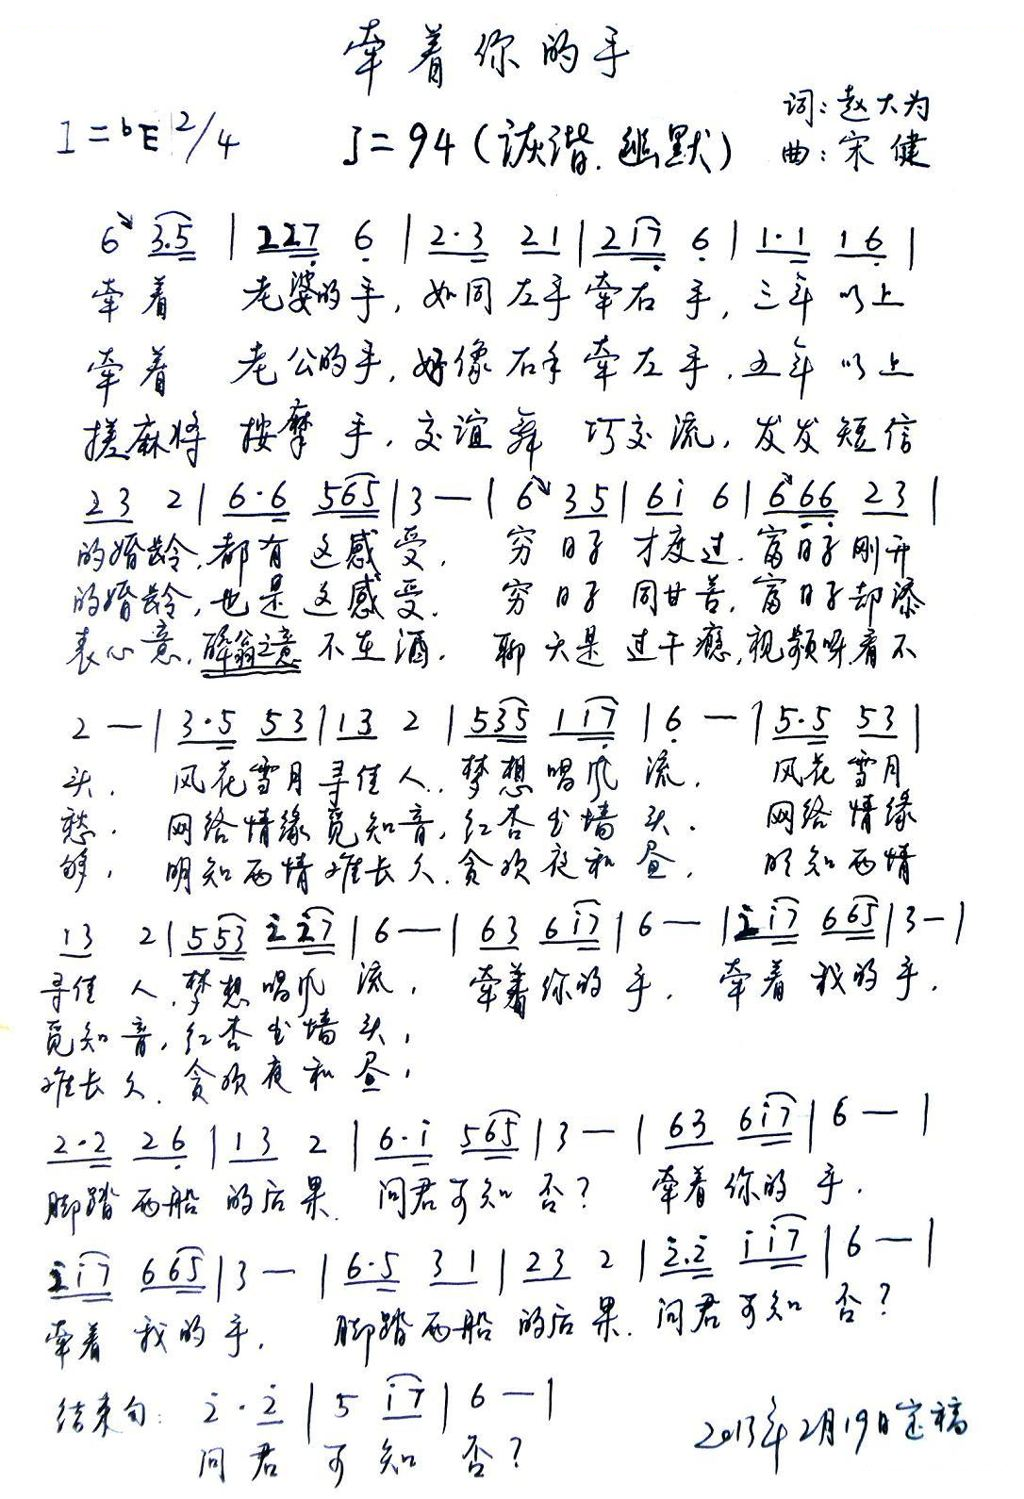 牵着你的手
词:赵大为
1=bE 2/4 J=94(诙谐.幽默) 曲:宋健
6 3.5 | 227 6 | 2·3 21 | 217 6 | 1·1 16 |
牵着 老婆的手,如同左手牵右手,三年以上
牵着 老公的手,好像右手牵左手,五年以上
搓麻将 按摩手,交谊舞 巧交流,发发短信
23 2 | 6·6 565 | 3 — | 6 35 | 6i 6 | 666 23 |
的婚龄,都有这感受. 穷日子才度过.富日子刚开
的婚龄,也是这感受. 穷日子同甘苦,富日子却添
表心意,醉翁之意不在酒. 聊天是过干瘾,视频呀看不
2 — | 3·5 53 | 13 2 | 535 117 | 6 — | 5·5 53 |
头. 风花雪月寻佳人,梦想唱风流. 风花雪月
愁. 网络情缘觅知音,红杏出墙头. 网络情缘
够, 明知两情难长久.贪欢夜和昼. 明知两情
13 2 | 553 i27 | 6 — | 63 6i7 | 6 — | ii7 665 | 3 — |
寻佳人.梦想唱风流. 牵着你的手. 牵着我的手.
觅知音,红杏出墙头,
难长久.贪欢夜和昼,
2·2 26 | 13 2 | 6·i 565 | 3 — | 63 6i7 | 6 — |
脚踏两船的后果. 问君可知否? 牵着你的手.
ii7 665 | 3 — | 6·5 31 | 23 2 | 2·2 ii7 | 6 — |
牵着我的手. 脚踏两船的后果.问君可知否?
结束句: 2·2 | 5 i7 | 6 — |
问君可知否?
2013年2月19日定稿